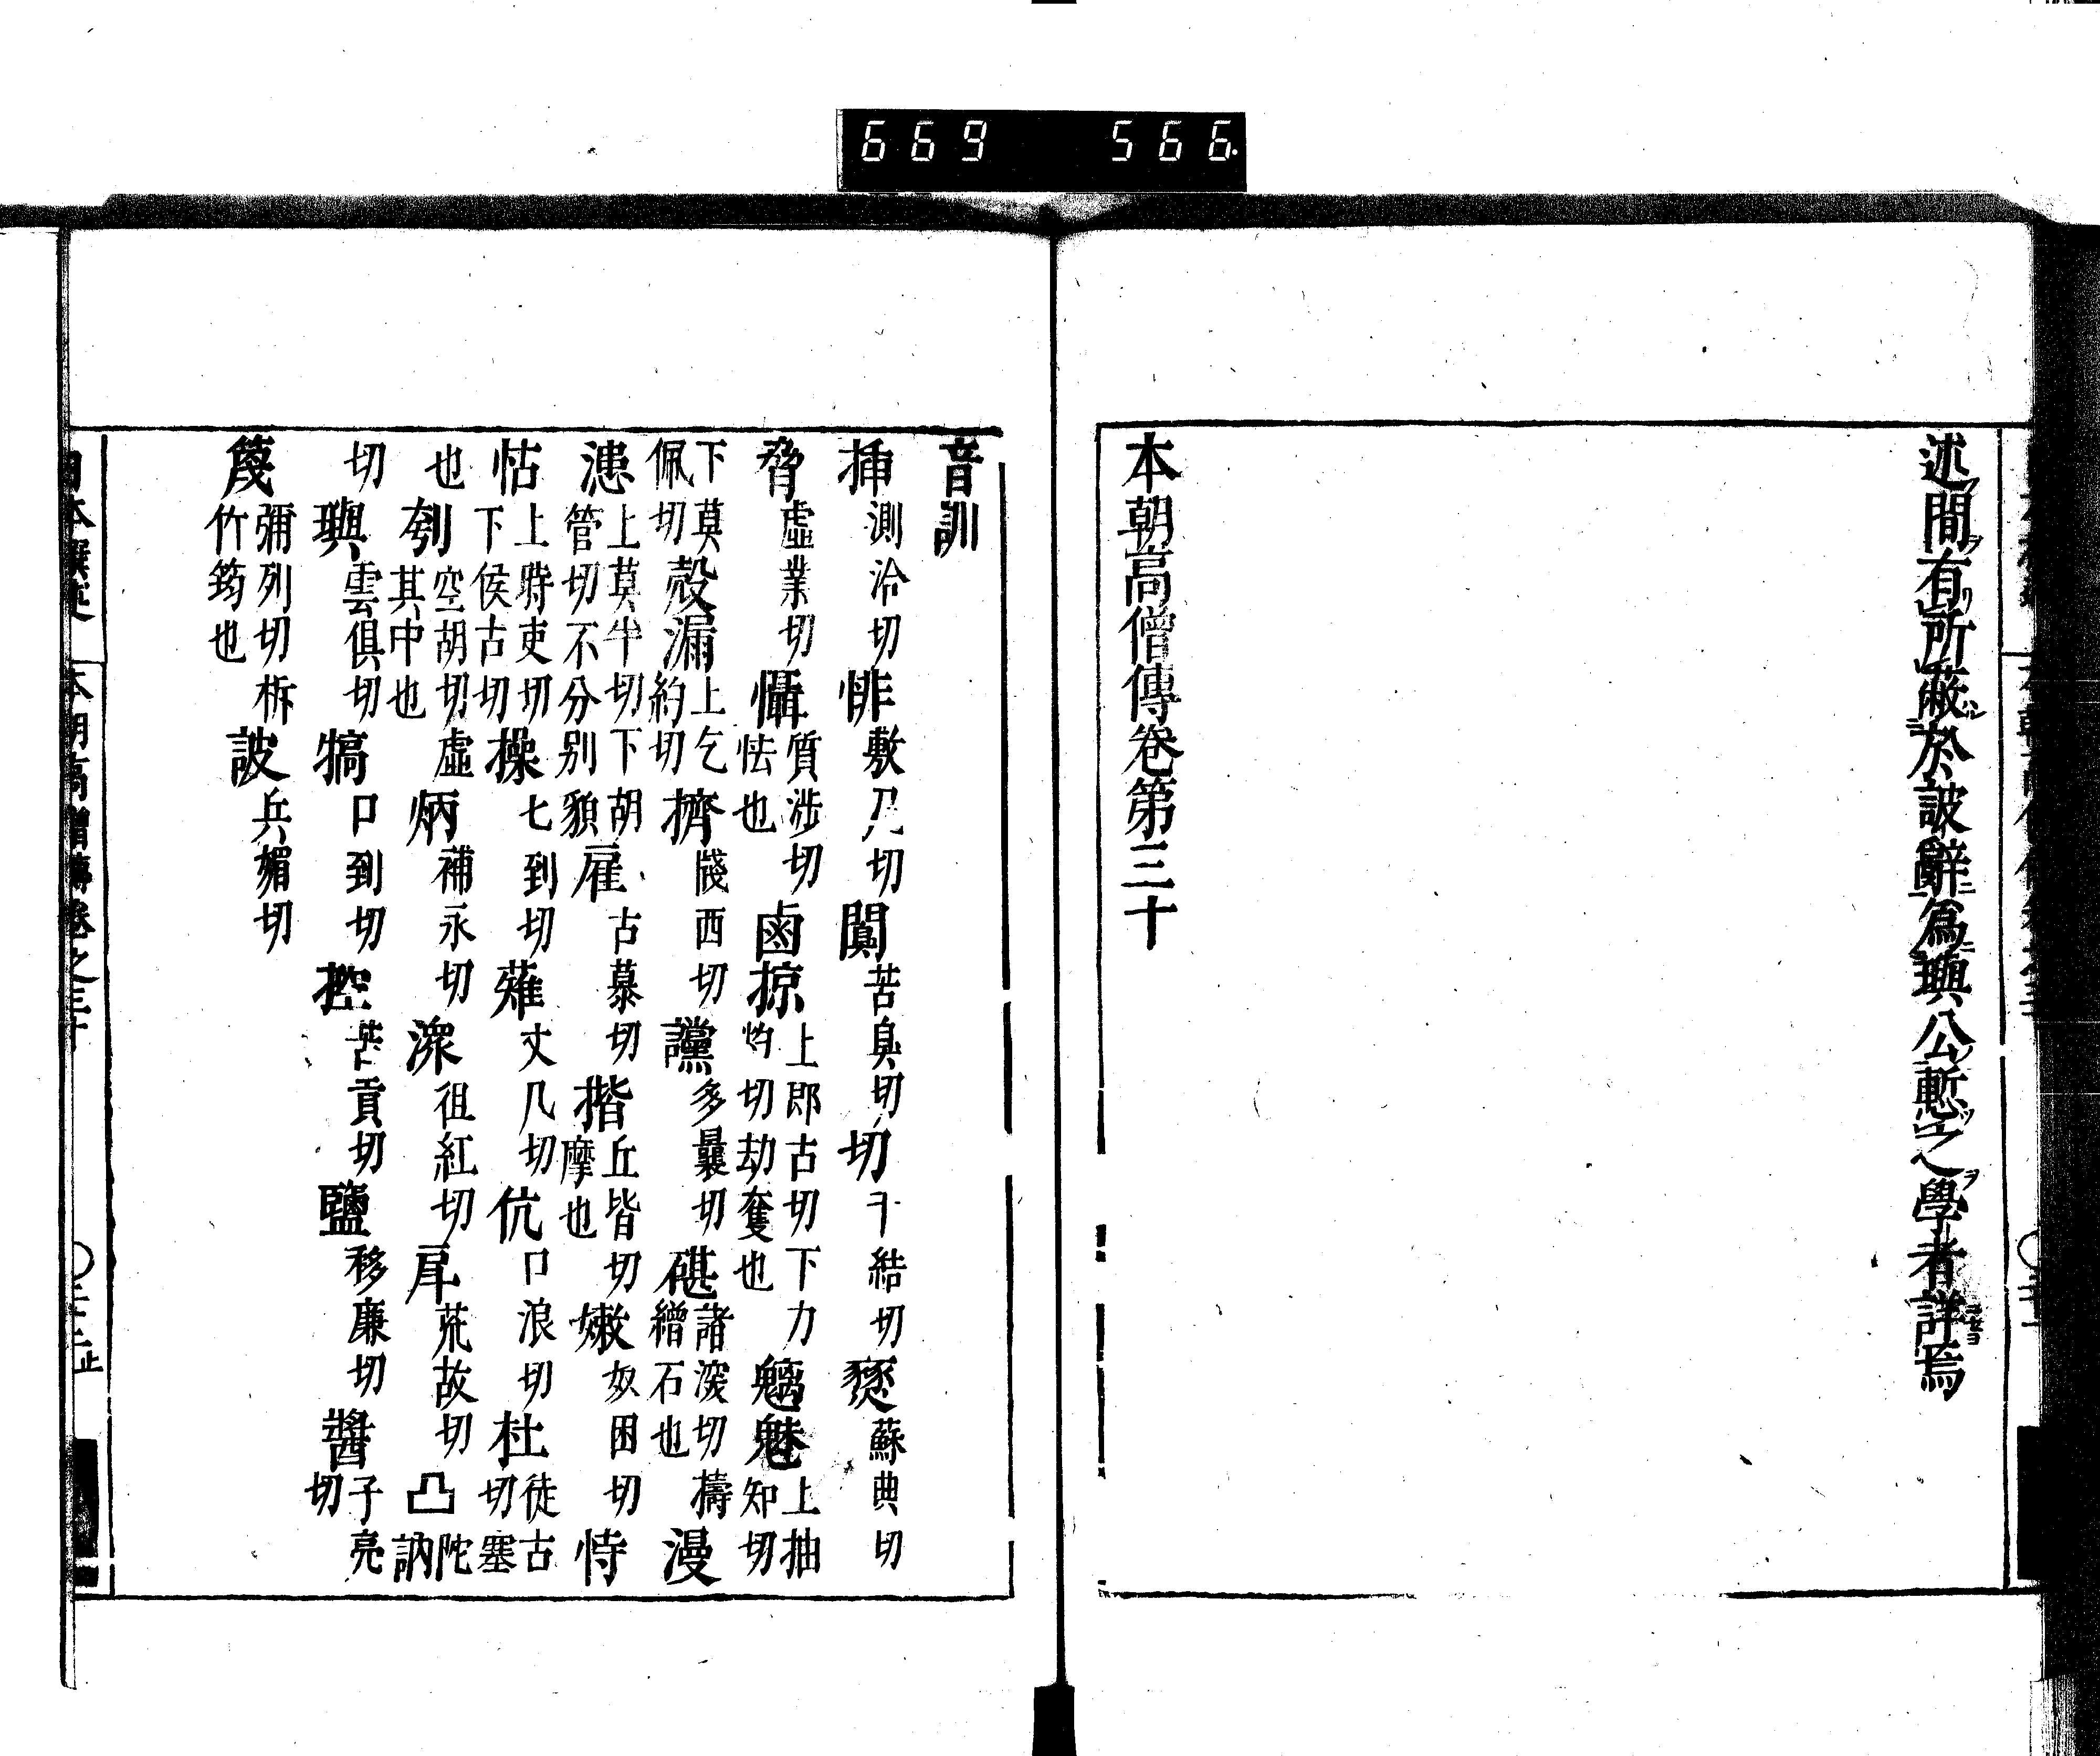 669 566.
述間有所蔽於詖辭爲璵公慙之學者詳焉
本朝高僧傳卷第三十
音訓
挿測洽切 悱敷尾切 闃苦臭切 切千結切 燹蘇典切
脅虛業切 懾質涉切怯也 鹵掠上郎古切下力灼切劫奪也 魑魅上抽知切
下莫佩切 殼漏上乞約切 擠牋西切 讜多曩切 碪諸深切擣繒石也 漫
漶上莫半切下胡管切不分別貌 雇古慕切 揩丘皆切摩也 嫩奴困切 恃
怙上時吏切下侯古切 操七到切 薙丈几切 伉口浪切 杜徒古切塞
也 刳空胡切虛其中也 炳補永切 潨徂紅切 戽荒故切 凸陀訥
切 璵雲俱切 犒口到切 控苦貢切 鹽移廉切 醬子亮切
篾彌列切析竹筠也 詖兵媚切
本朝高僧傳卷之三十